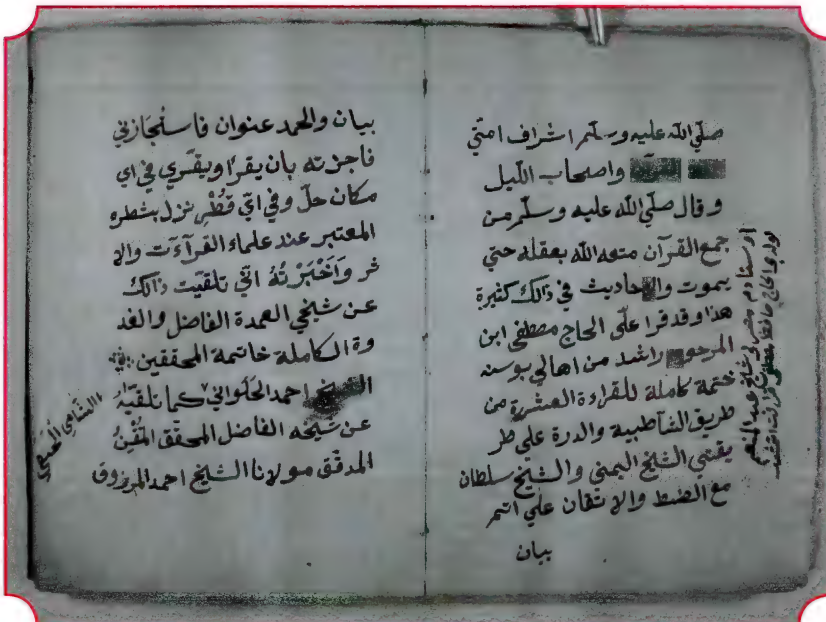 صلّي الله عليه وسلّم اشراف امتي
واصحاب اللّيل
وقال صلّي الله عليه وسلّم من
جمع القرآن متعه الله بعقله حتي
يموت والاحاديث في ذالك كثيرة
هذا وقد قرا علّي الحاج مصطفي ابن
المرحوم راشد من اهالي بوسنه
ختمة كاملة للقراءة العشرة من
طريق الشاطبية والدرة علي طر
يقتي الشيخ اليمني والشيخ سلطان
مع الضبط والاتقان علي اتمر
بيان
بيان والحمد عنوان فاستجازني
فاجزته بان يقرا ويقري في اي
مكان حلّ وفي ايّ قُطْرٍ نزل بشطره
المعتبر عند علماء القرآءت والا
ثر وَاَخْبَرْتُهُ انّي تلقّيت ذالك
عن شيخي العمدة الفاضل والقد
وة الكاملة خاتمة المحققين
الشيخ احمد الحلواني كما تلقيّه
عن شيخه الفاضل المحقق المُتْقِنُ
المدقّق مولانا الشيخ احمد المرزوق